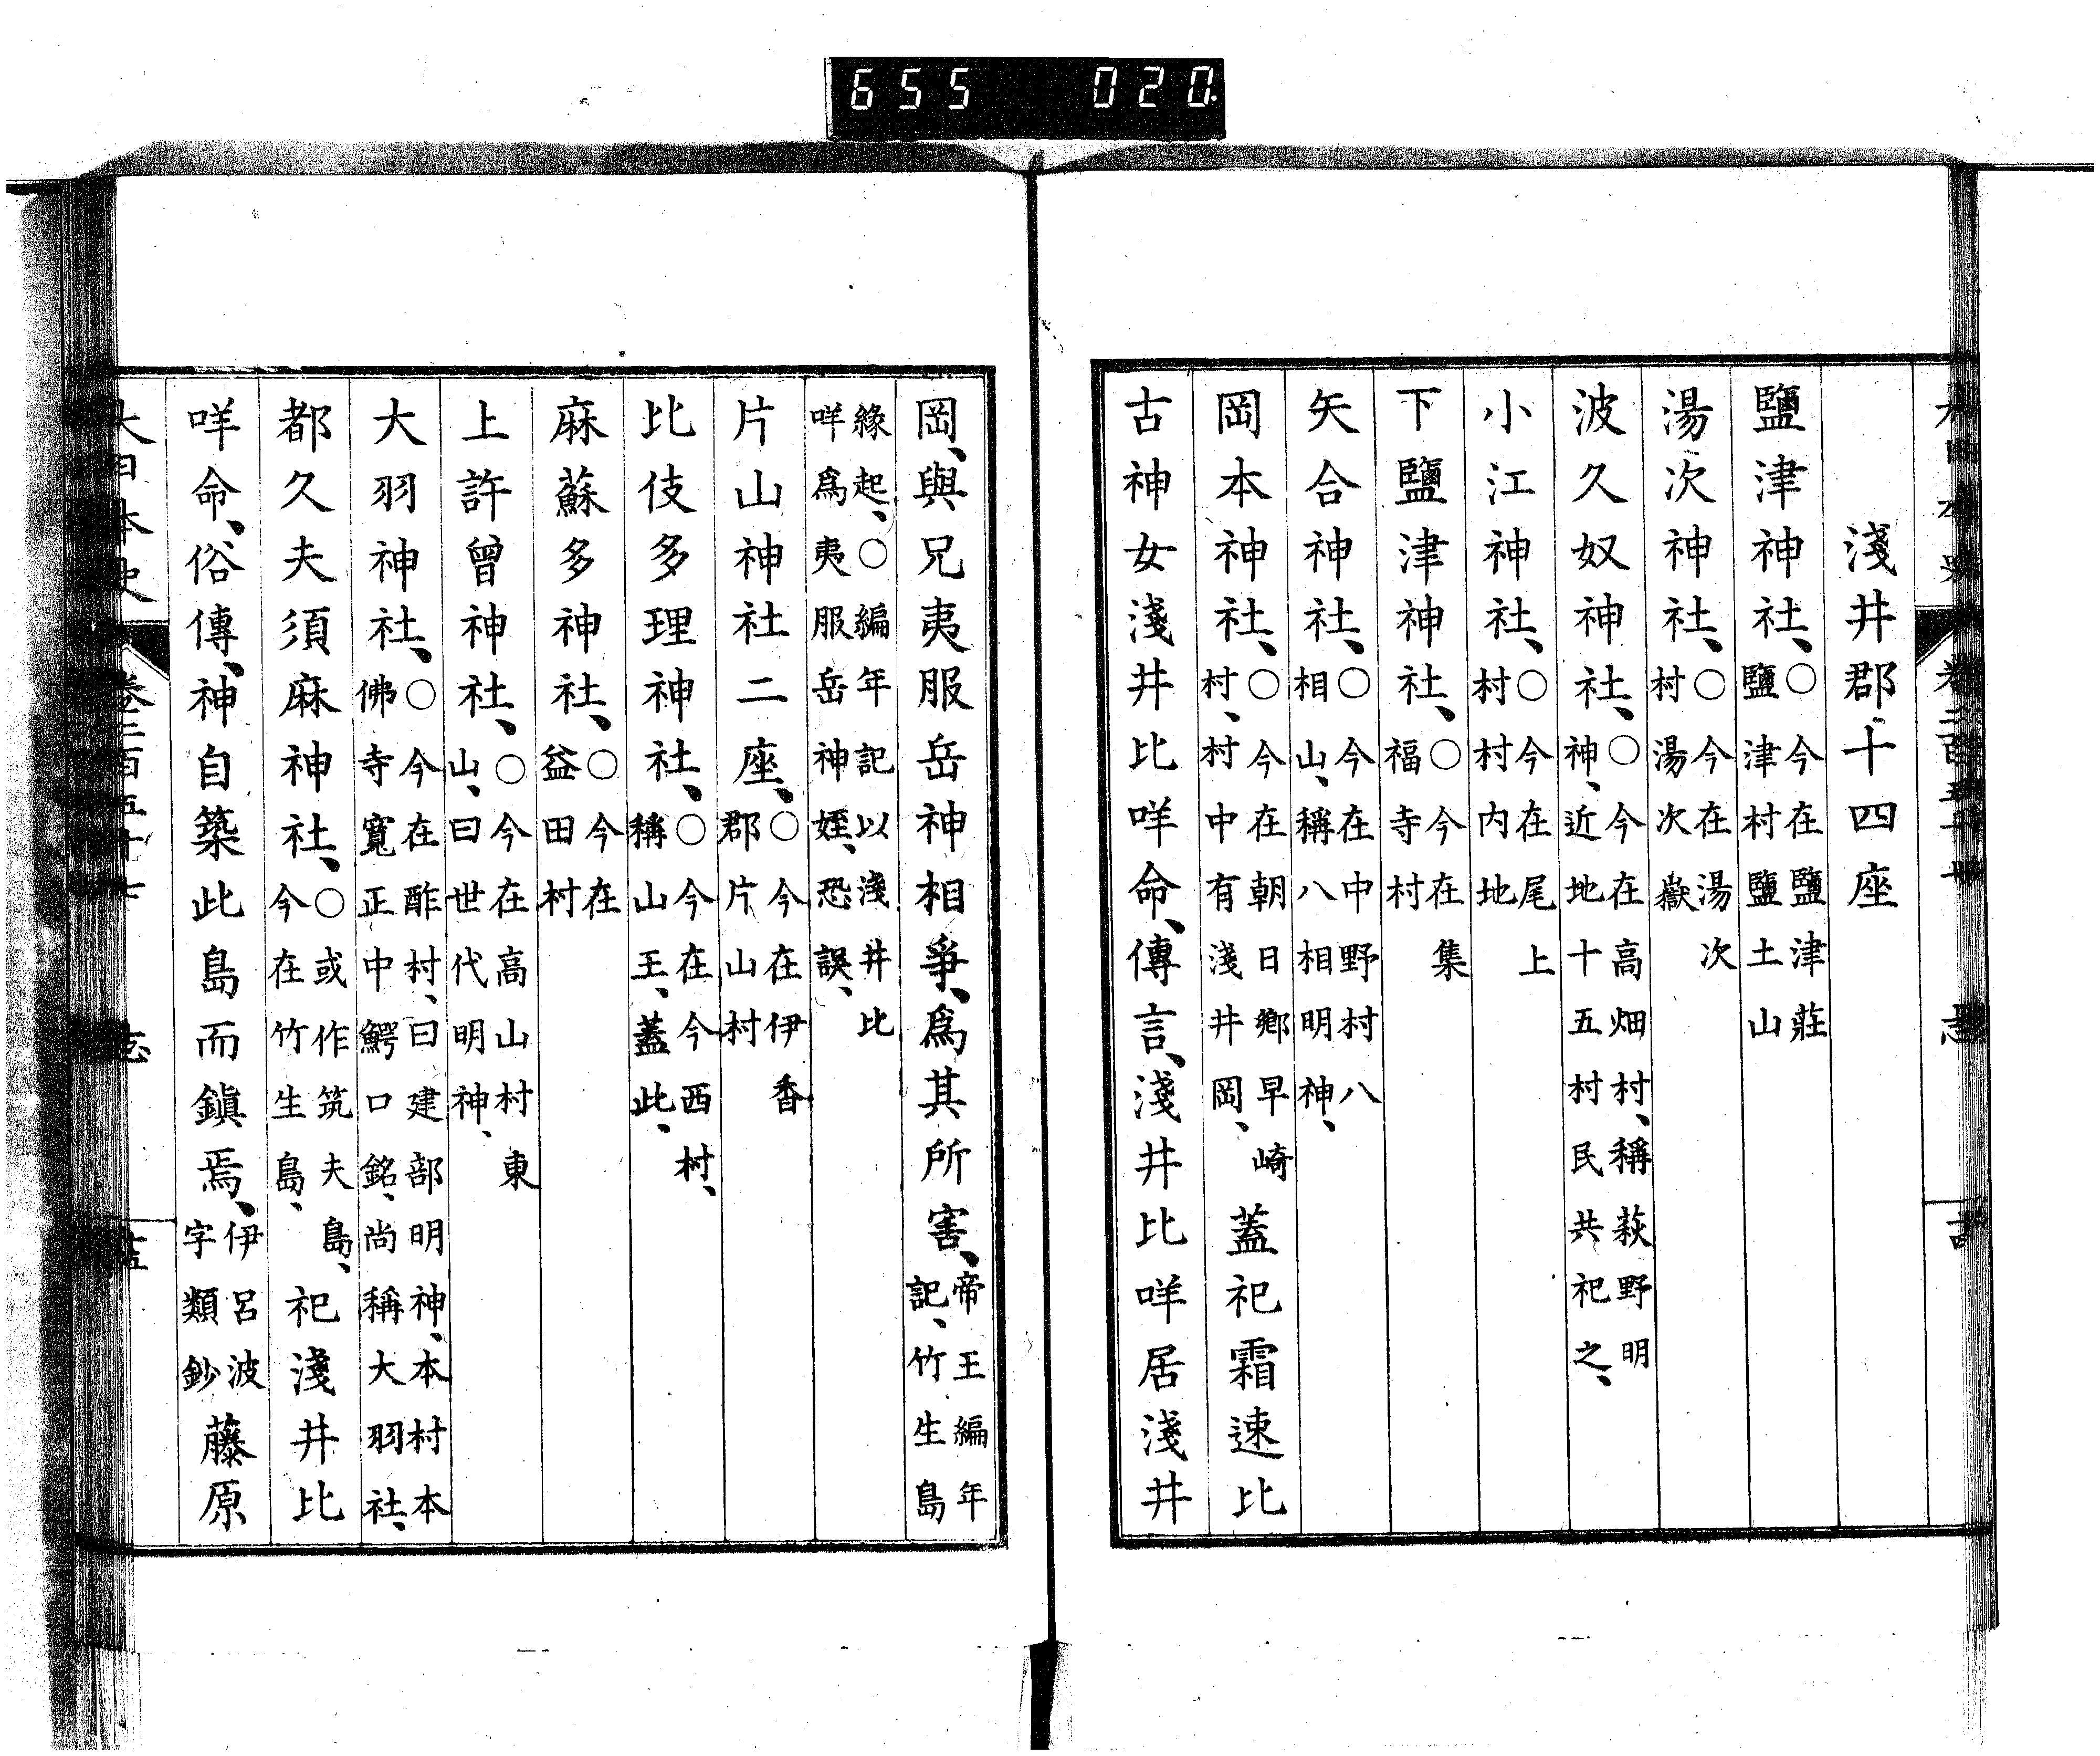 655 020
淺井郡十四座
鹽津神社、○今在鹽津莊鹽津村鹽土山
湯次神社、○今在湯次村湯次嶽
波久奴神社、○今在高畑村、稱萩野明神、近地十五村民共祀之、
小江神社、○今在尾上村村內地
下鹽津神社、○今在集福寺村
矢合神社、○今在中野村八相山、稱八相明神、
岡本神社、○今在朝日鄉早崎村、村中有淺井岡、蓋祀霜速比
古神女淺井比咩命、傳言、淺井比咩居淺井
岡、與兄夷服岳神相爭、爲其所害、帝王編年記、竹生島
緣起、○編年記以淺井比咩爲夷服岳神姪、恐誤、
片山神社二座、○今在伊香郡片山村
比伎多理神社、○今在今西村、稱山王、蓋此、
麻蘇多神社、○今在益田村
上許曾神社、○今在高山村東山、曰世代明神、
大羽神社、○今在酢村、曰建部明神、本村本佛寺寬正中鰐口銘、尚稱大羽社、
都久夫須麻神社、○或作筑夫島、今在竹生島、祀淺井比
咩命、俗傳、神自築此島而鎭焉、伊呂波字類鈔藤原
大日本史 卷二百五十七 志